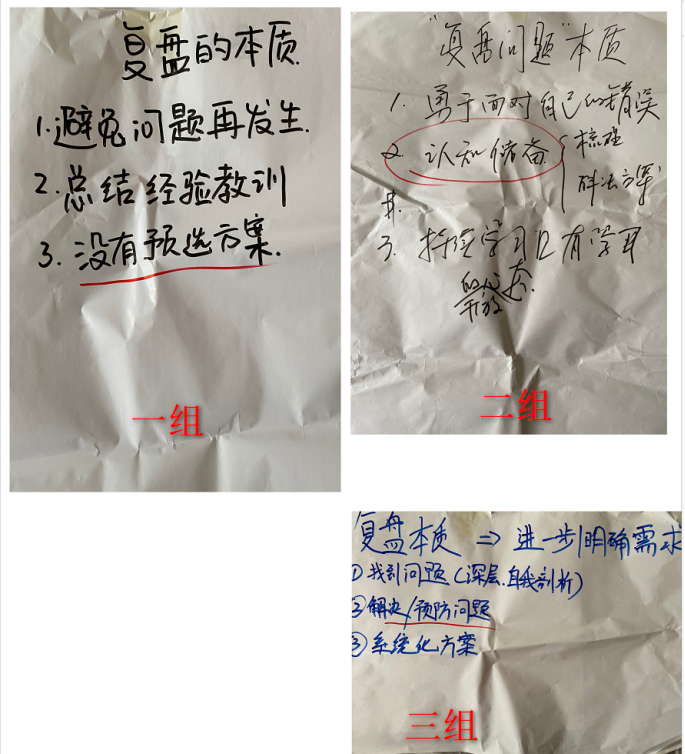 复盘的本质
1.避免问题再发生.
2.总结经验教训
3.没有预选方案.
一组
"复盘问题"本质
1.勇于面对自己的错误
2.认知储备{梳理
方案
3.持续学习
开放
二组
复盘本质 ⇒ 进一步明确需求
①找到问题(深层.自我剖析)
②解决/预防问题
③系统化方案
三组